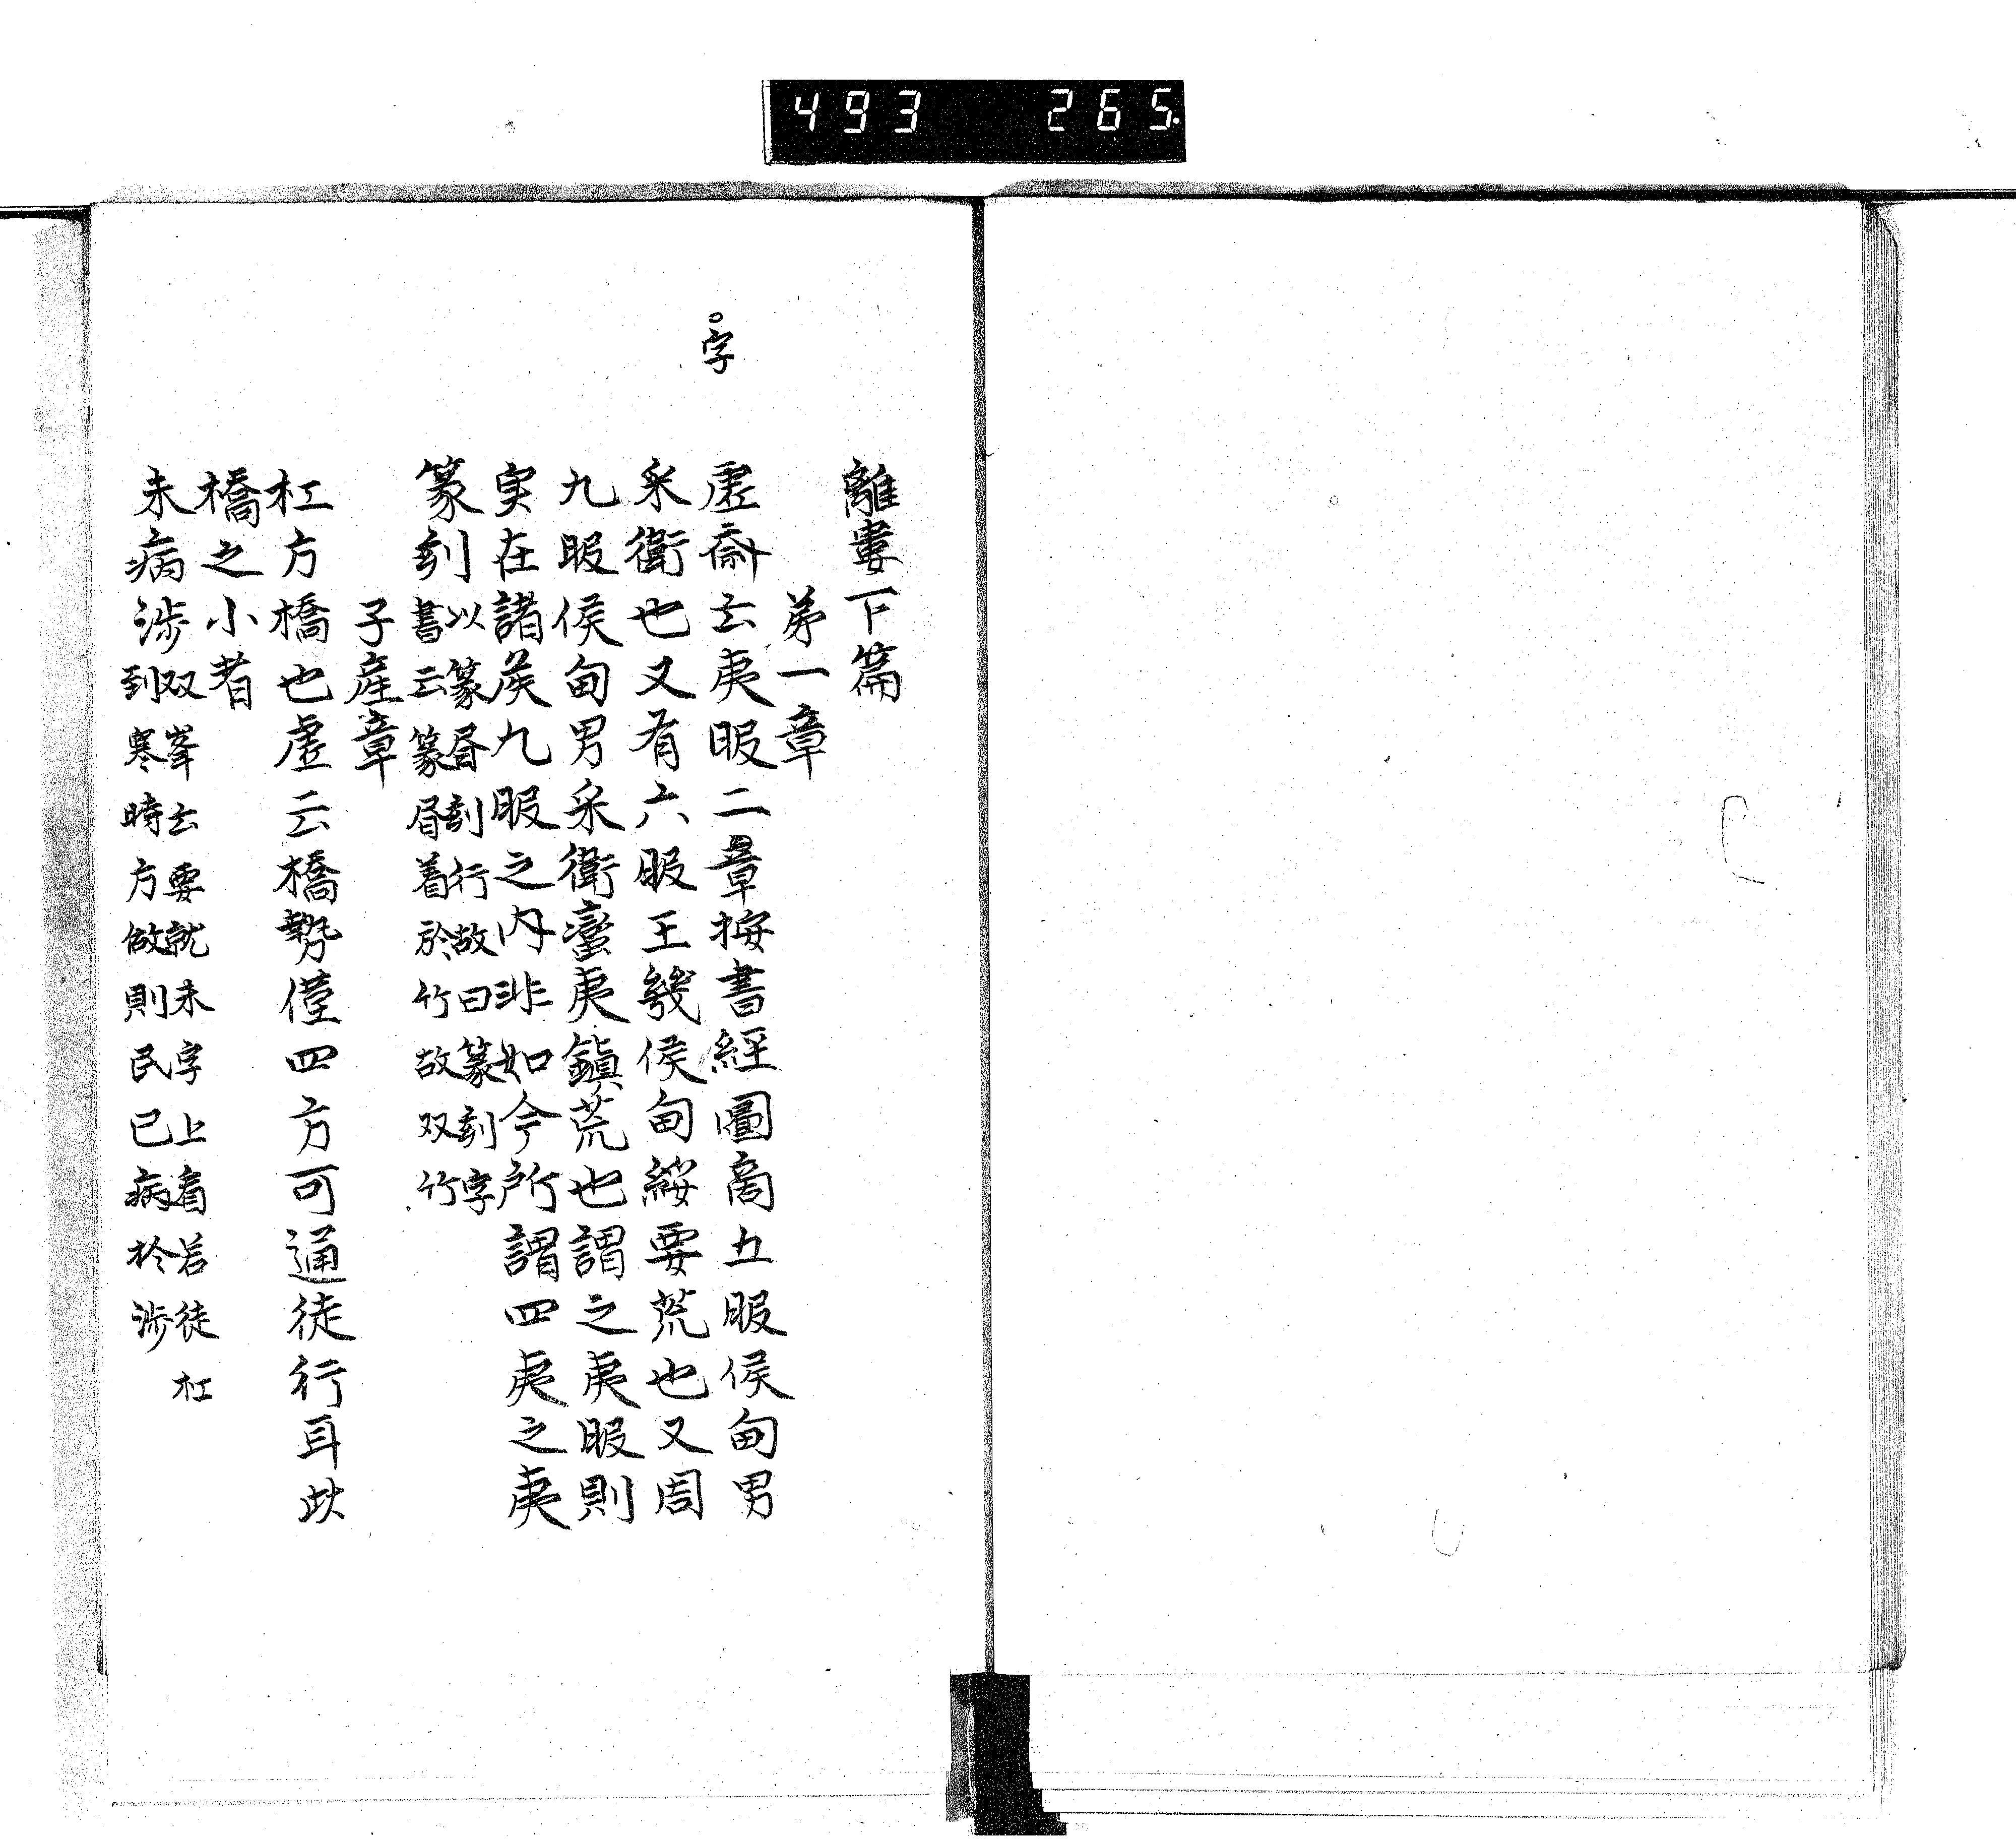 493 265
離婁下篇
第一章
字
虚斎云夷服二章按書經圖商五服侯甸男
采衛也又有六服王畿侯甸綏要荒也又周
九服侯甸男采衛蠻夷鎮荒也謂之夷服則
実在諸侯九服之内非如今所謂四夷之夷
篆刻
以篆眉刻行故曰篆刻字
書云篆眉着於竹故双竹
子産章
杠方橋也虚云橋勢僅四方可通徒行耳此
橋之小者
未病渉
双峯云要就未字上看若徒杠
到寒時方做則民已病於渉